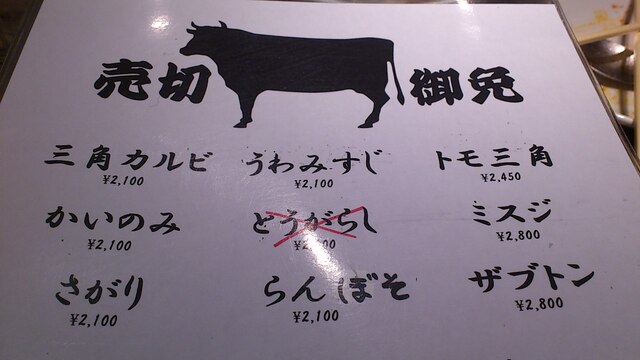 売切 御免
三角カルビ うわみすじ トモ三角
¥2,100 ¥2,100 ¥2,450
かいのみ とうがらし ミスジ
¥2,100 ¥2,800
さがり らんぼそ ザブトン
¥2,100 ¥2,100 ¥2,800